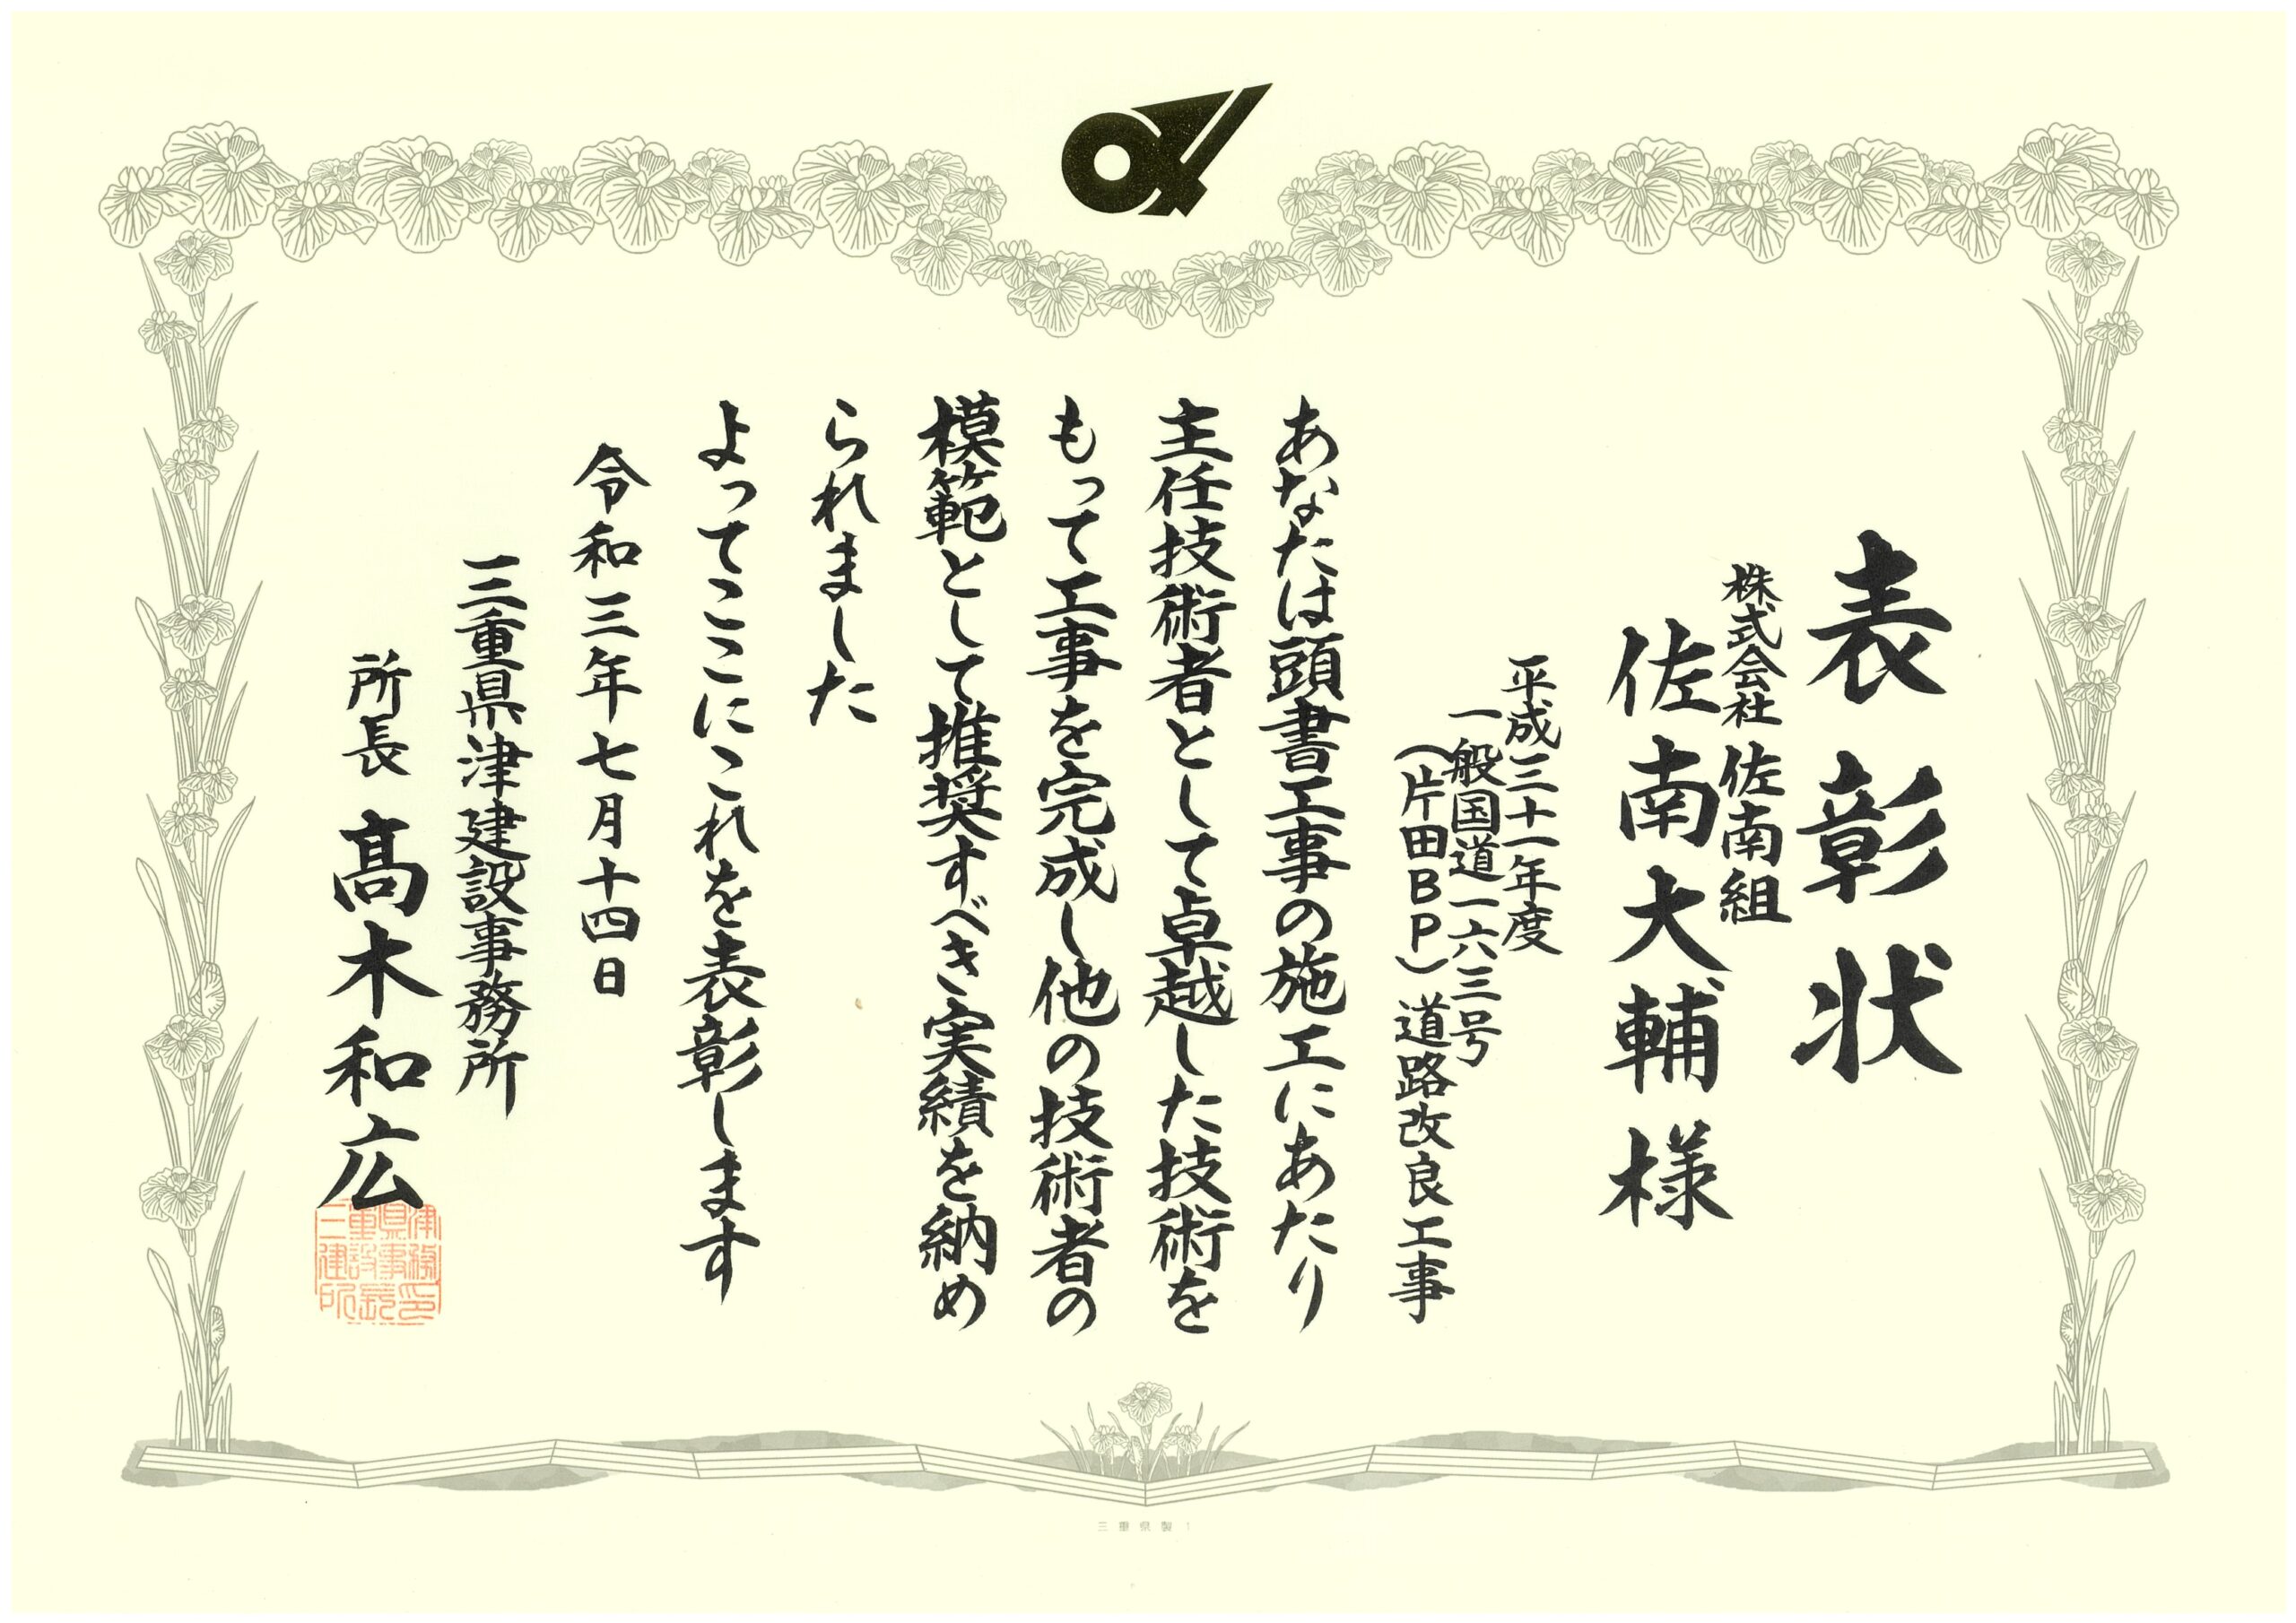 表彰状
株式会社 佐南組
佐南大輔様
平成三十一年度
一般国道一六三号
(片田BP)道路改良工事
あなたは頭書工事の施工にあたり
主任技術者として卓越した技術を
もって工事を完成し他の技術者の
模範として推奨すべき実績を納め
られました
よってここにこれを表彰します
令和三年七月十四日
三重県津建設事務所
所長 髙木和広
三重県製